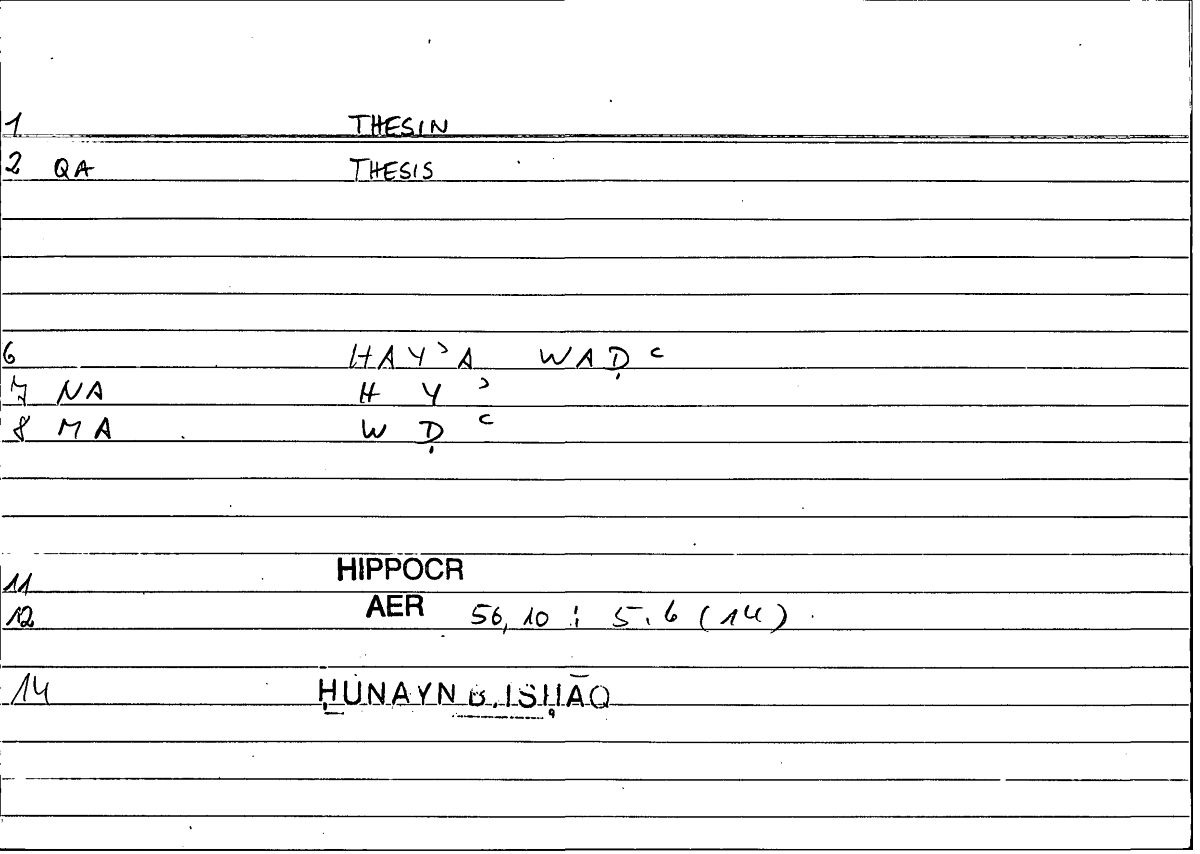 1 THESIN
2 QA THESIS
6 HAYʾA WAḌʿ
7 NA H Y ʾ
8 MA W Ḍ ʿ
11 HIPPOCR
12 AER 56,10 ; 5.6 (14)
14 ḤUNAYN B. ISḤĀQ